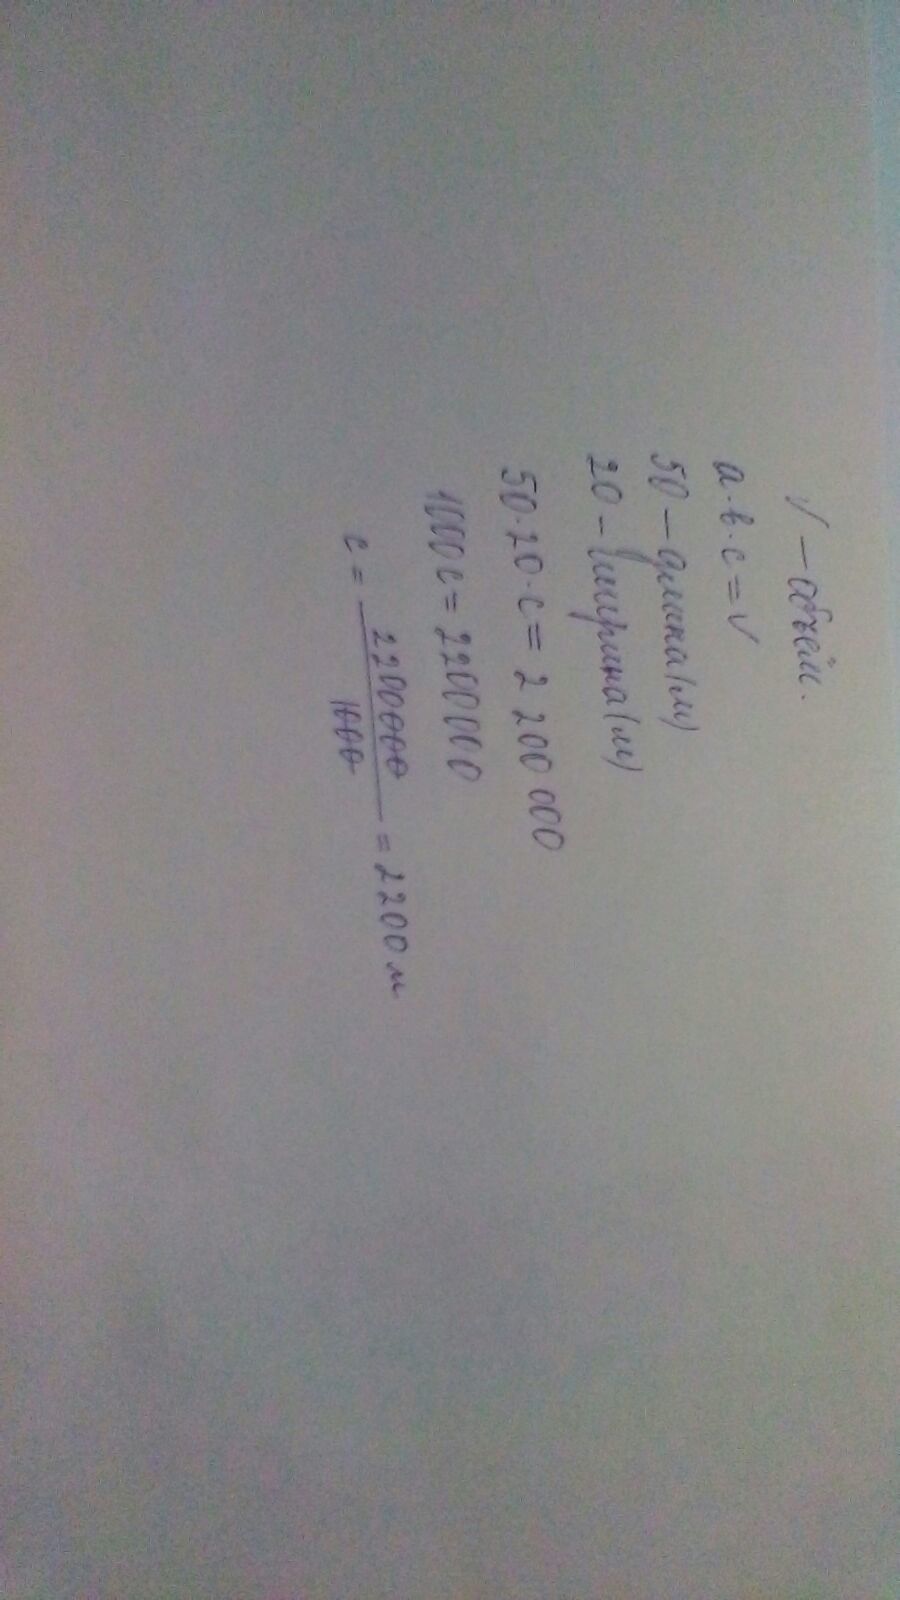 V – объём.
a·b·c=V
50 – длина(м)
20 – ширина(м)
50·20·c= 2 200 000
1000c= 2200000
c = 2200000/1000 = 2200 м